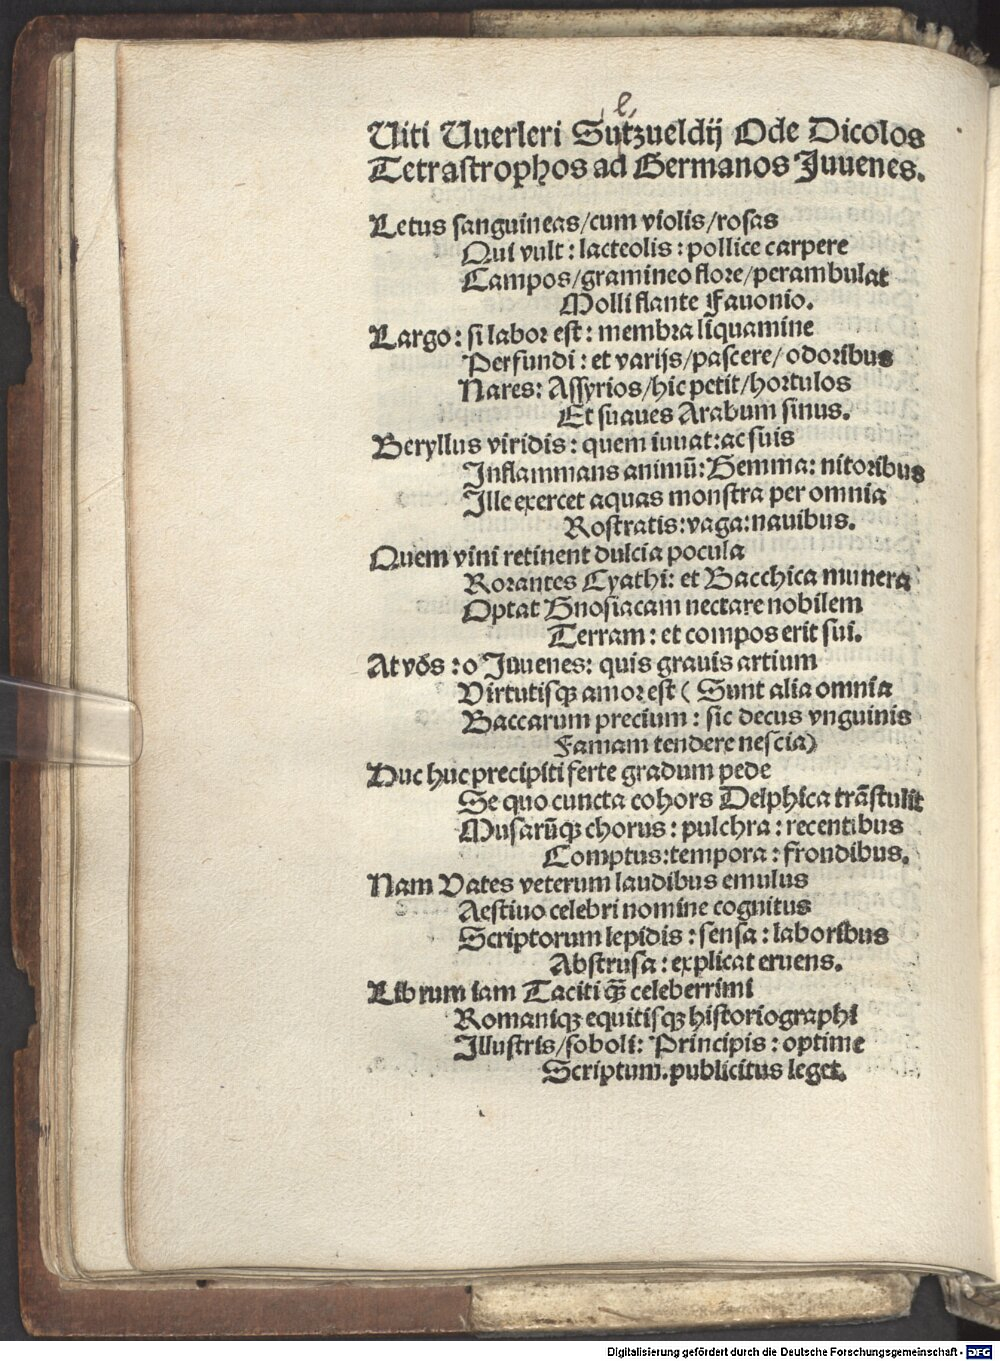 Uiti Uuerleri Sutzueldij Ode Dicolos
Tetrastrophos ad Germanos Juuenes.
Letus sanguineas/cum violis/rosas
Qui vult: lacteolis: pollice carpere
Campos/gramineo flore/perambulat
Molli flante Fauonio.
Largo: si labor est: membra liquamine
Perfundi: et varijs/pascere/odoribus
Nares: Assyrios/hic petit/hortulos
Et suaues Arabum sinus.
Beryllus viridis: quem iuuat: ac suis
Inflammans animū: Gemma: nitoribus
Ille exercet aquas monstra per omnia
Rostratis: vaga: nauibus.
Quem vini retinent dulcia pocula
Rorantes Cyathi: et Bacchica munera
Optat Gnosiacam nectare nobilem
Terram: et compos erit sui.
At vos: o Juuenes: quis grauis artium
Virtutisqꝫ amor est ( Sunt alia omnia
Baccarum precium: sic decus vnguinis
Famam tendere nescia)
Huc huc precipiti ferte gradum pede
Se quo cuncta cohors Delphica trāstulit
Musarūqꝫ chorus: pulchra: recentibus
Comptus: tempora: frondibus.
Nam Vates veterum laudibus emulus
Aestiuo celebri nomine cognitus
Scriptorum lepidis: sensa: laboribus
Abstrusa: explicat eruens.
Librum iam Taciti qꝫ̄ celeberrimi
Romaniqꝫ equitisqꝫ historiographi
Illustris/soboli: Principis: optime
Scriptum. publicitus leget.
Digitalisierung gefördert durch die Deutsche Forschungsgemeinschaft - DFG